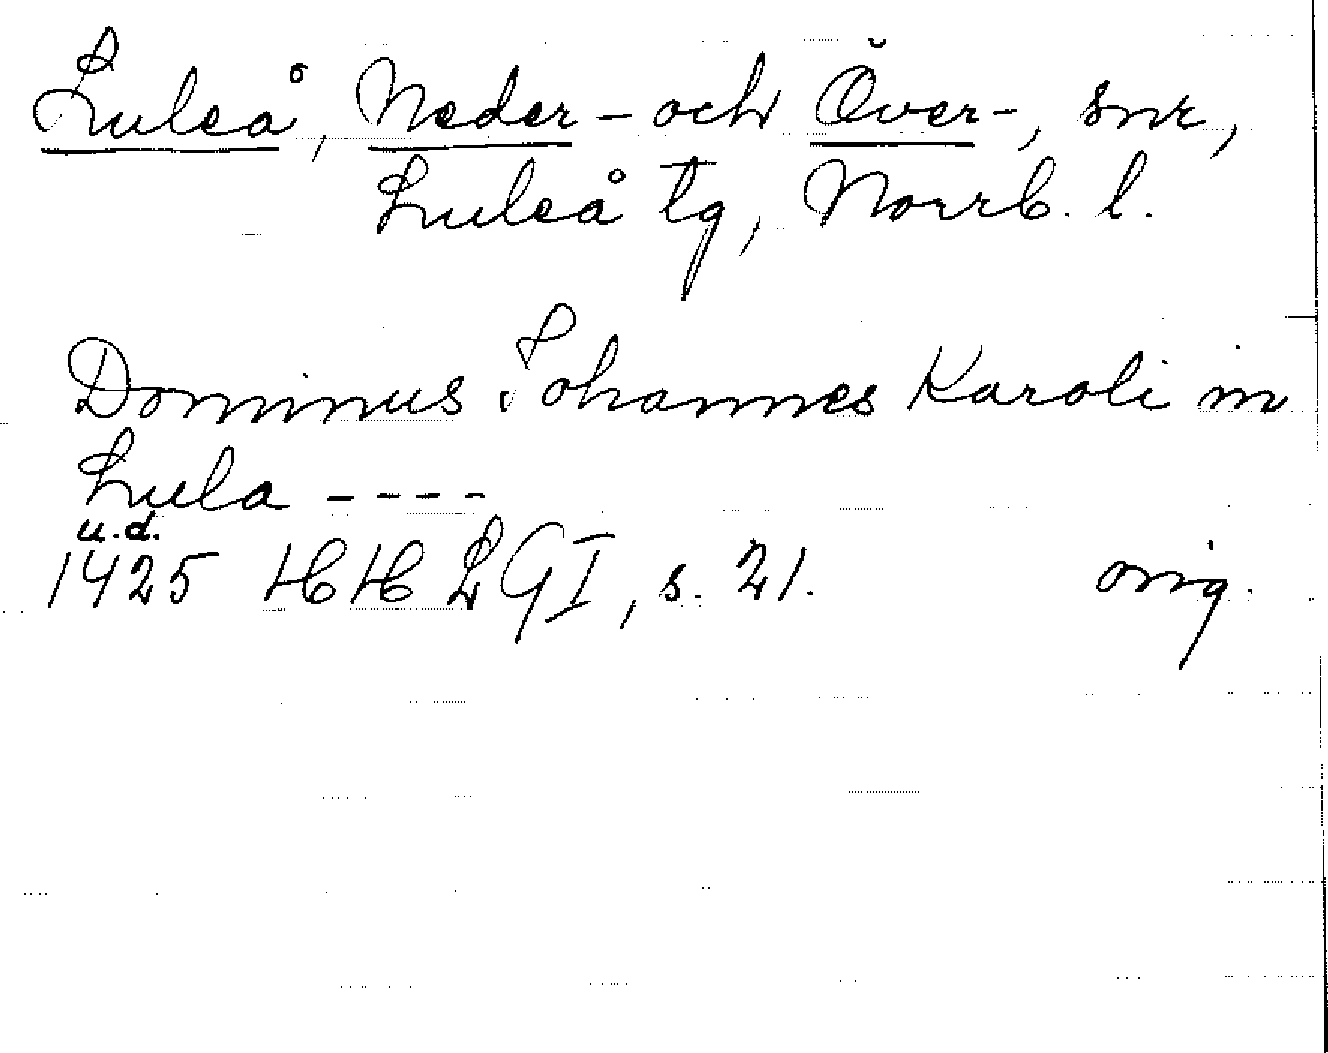 Luleå, Neder- och Över-, snr,
Luleå tg, Norrb. l.
Dominus Johannes Karoli in
Lula ----
u.d.
1425 HH LGI, s. 21. orig.